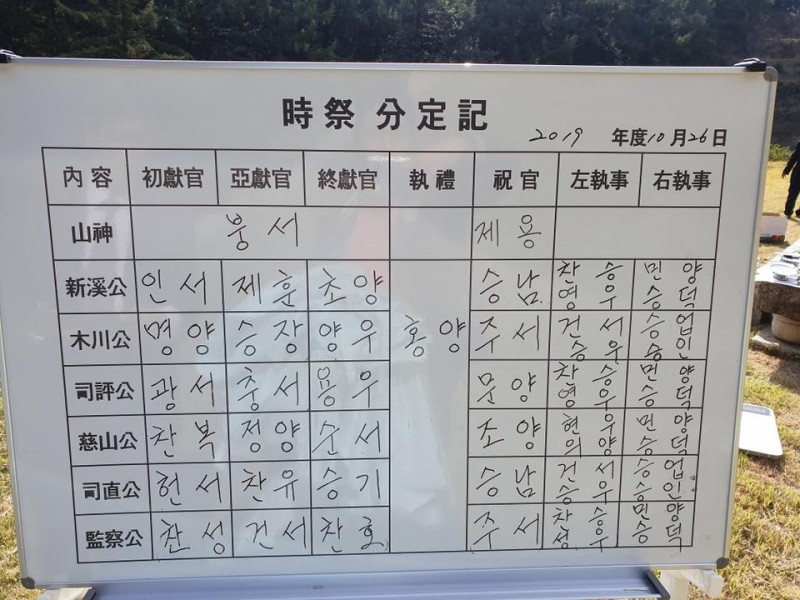 時祭 分定記
2019 年度 10月 26日
內容 初獻官 亞獻官 終獻官 執禮 祝官 左執事 右執事
山神 붕서 제용
新溪公 인서 제훈 초양 승남 찬승 영우 민양 승덕
木川公 명양 승장 양우 홍양 주서 건서 승우 승업 승인
司評公 광서 충서 용우 문양 찬승 영우 민양 승덕
慈山公 찬복 정양 순서 조양 현우 의양 민양 승덕
司直公 헌서 찬유 승기 승남 건서 승우 승업 승인
監察公 찬성 건서 찬호 주서 찬승 성우 민양 승덕